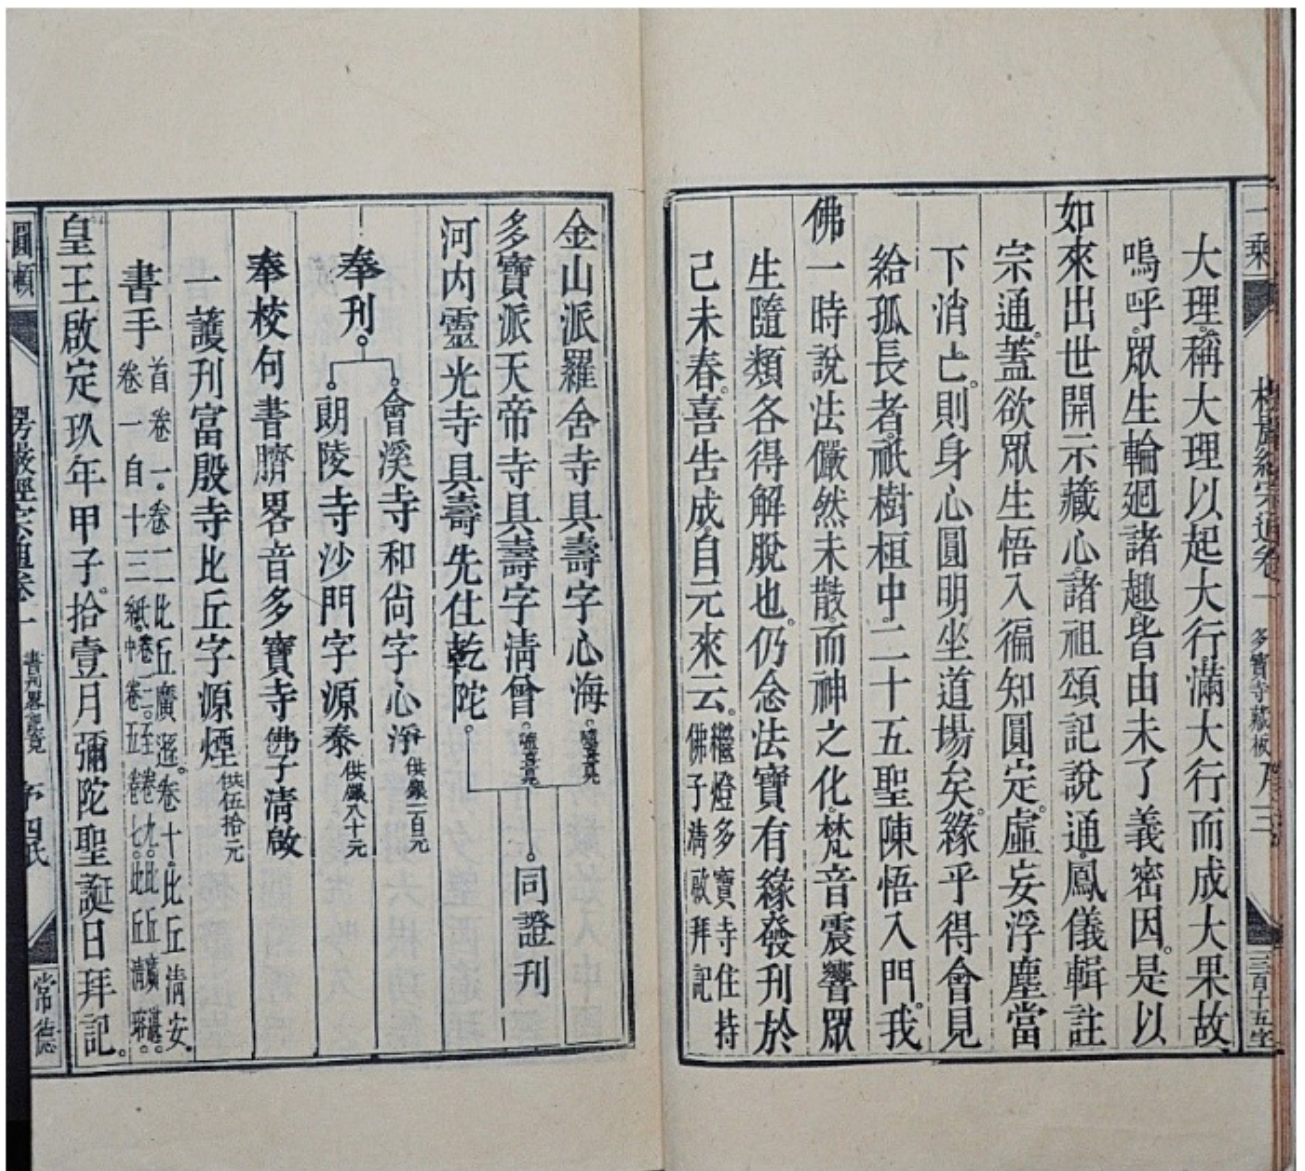 大理。稱大理以起大行滿大行而成大果故
嗚呼。眾生輪廻諸趣。皆由未了義密因。是以
如來出世開示藏心。諸祖頌記說通。鳳儀輯註
宗通。蓋欲眾生悟入徧知圓定。虛妄浮塵當
下消亡。則身心圓明坐道場矣。緣乎得會見
給孤長者。祇樹桓中。二十五聖陳悟入門。我
佛一時說法儼然未散。而神之化。梵音震響眾
生隨類各得解脫也。仍念法寶有緣發刊於
己未春。喜告成。自元來云。
繼燈多寶寺住持
佛子清啟拜記
金山派羅舍寺具壽字心海。隨喜見
多寶派天帝寺具壽字清曾。隨喜見
河内靈光寺具壽先住乾陀。
同證刊
奉刊。
會溪寺和尚字心淨 供銀一百元
朗陵寺沙門字源泰 供銀八十元
奉校句書臍畧音多寶寺佛子清啟
一護刊富殷寺比丘字源煙 供伍拾元
書手
首卷一。卷二比丘廣遜。卷十。比丘清安。
卷一自十三紙
皇王啟定玖年甲子。拾壹月彌陀聖誕日拜記。
一乘
楞嚴經宗通卷一
多寶寺藏板
三百十五字
圓頓
楞嚴經宗通卷一
常德